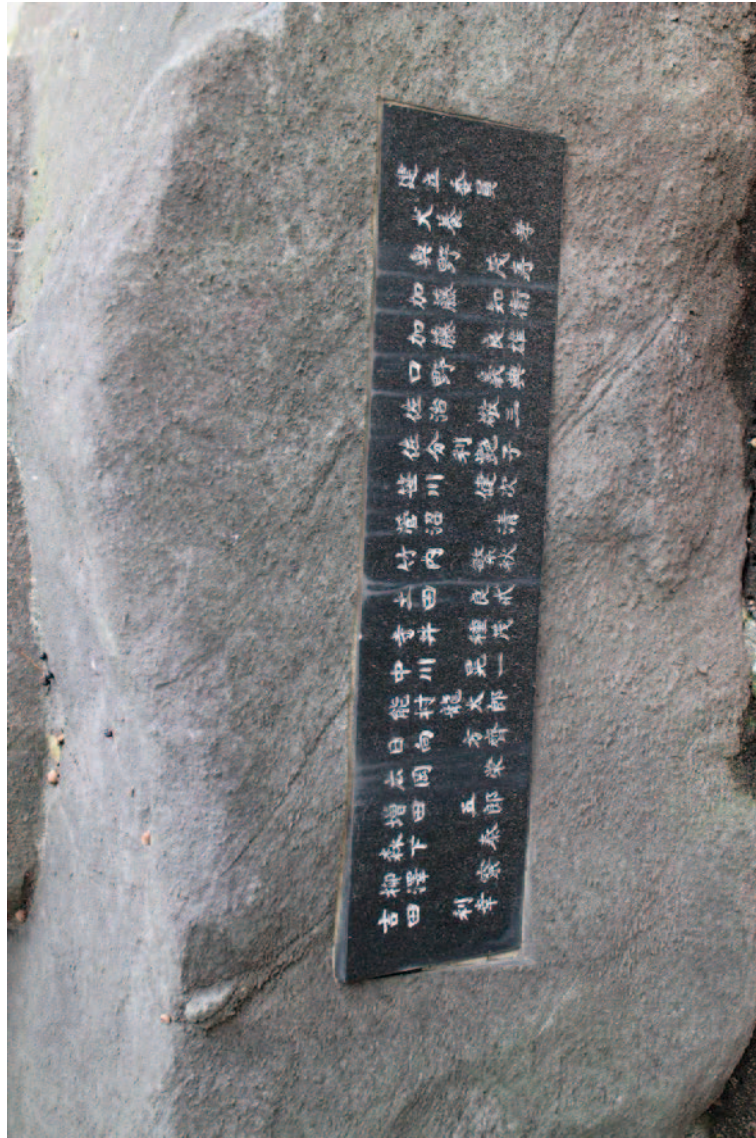 建立委員
大巻孝
奥野茂寿
加藤知衛
加藤良雄
口野義典
佐治敬三
佐分利艶子
笹川健次
菅沼清
竹内繁秋
土田良
寺井種茂
中川晃一
能村龍太郎
日向方齊
広岡栄
増田五郎
森下泰
柳澤
吉田利幸